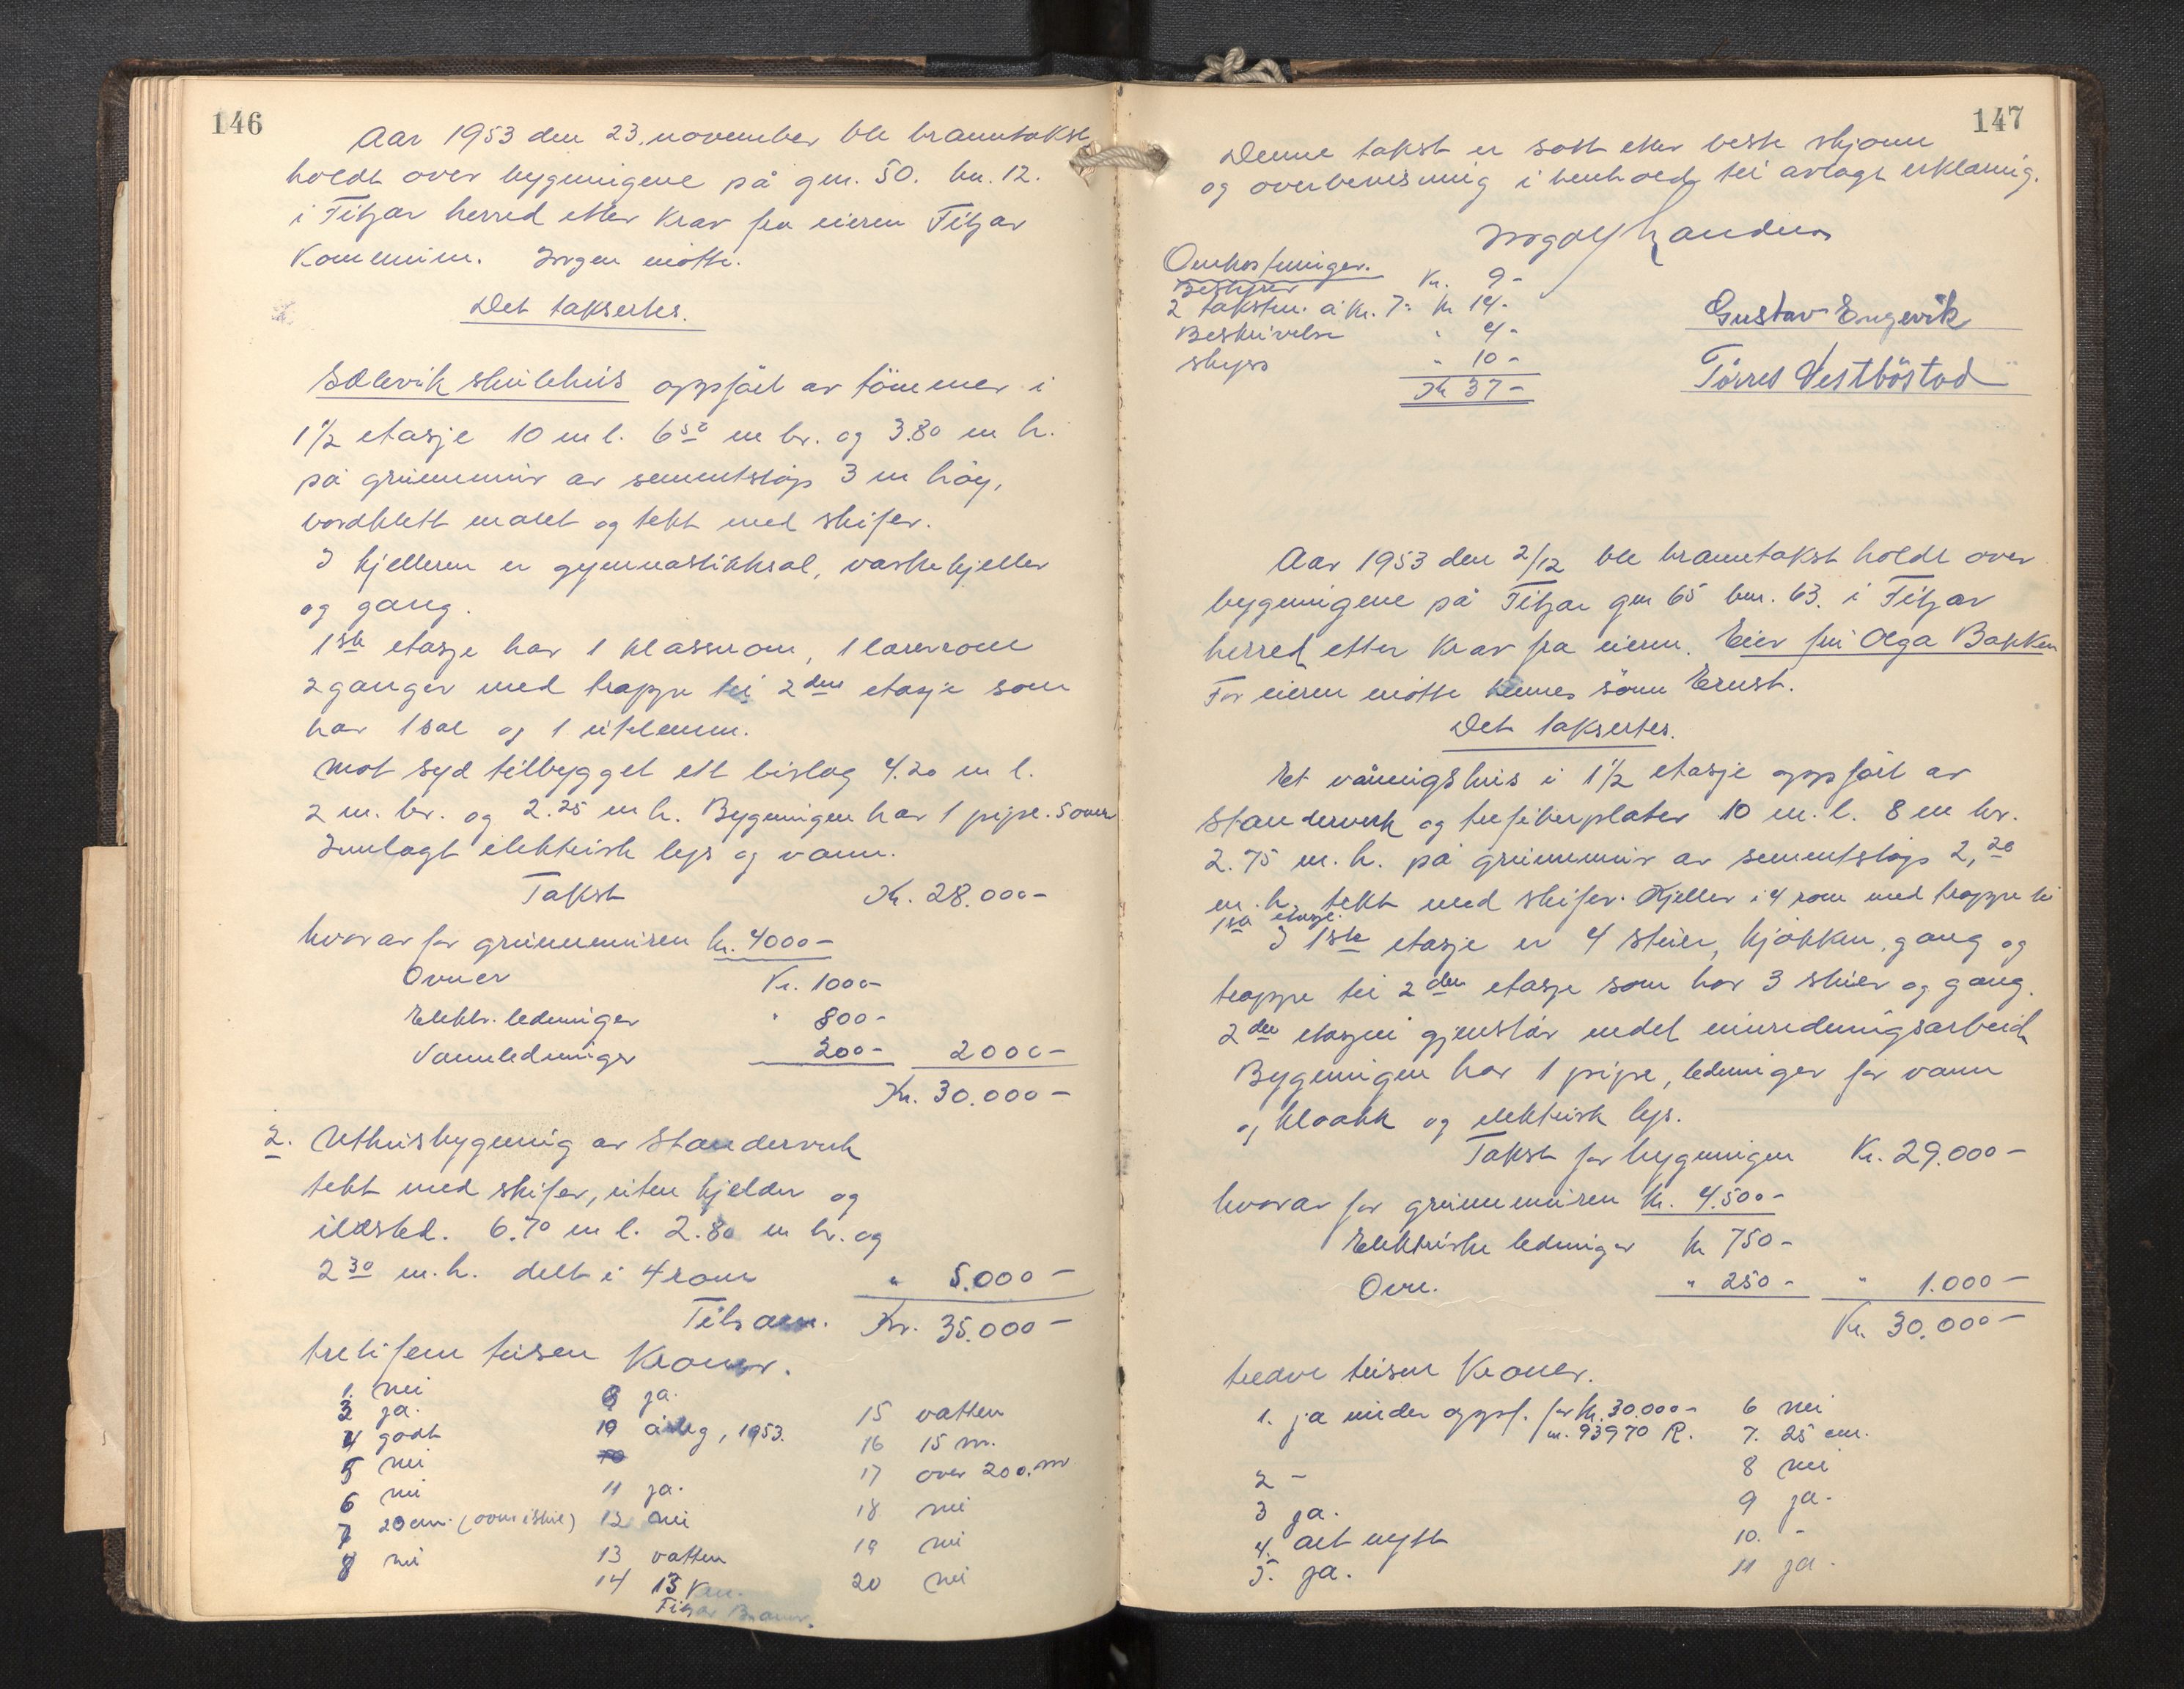 146
Aar 1953 den 23. november ble branntakst
holdt over bygningene på gnr. 50. bnr. 12.
i Fitjar herred etter krav fra eieren Fitjar
Kommune. Ingen møtte.
Det taksertes.
Sælevik skulehus oppført av tømmer i
1 1/2 etasje 10 m l. 6 50 m br. og 3.80 m h.
på grunnmur av sementstøp 3 m høy,
bordklett malt og tekt med skifer.
I kjelleren er gymnastikksal, vaskekjeller
og gang.
1ste etasje har 1 klasserom, 1 lærerrom
2 ganger med trappe til 2dre etasje som
har 1 sal og 1 uteleem.
Mot syd tilbygget ett bislag 4.20 m l.
2 m. br. og 2.25 m h. Bygningen har 1 pipe. 5 ovner
Innlagt elektrisk lys og vann.
Takst Kr. 28.000-
hvorav for grunnmuren kr. 4000-
Ovner Kr. 1000-
Elektr. ledninger " 800-
Vannledninger 200- 2000-
Kr. 30.000-
2. Uthusbygning av Standerverk
tekt med skifer, uten kjelder og
ildsted. 6.70 m l. 2.80 m br. og
2 30 m.h. delt i 4 rom " 5.000-
Tilsam. Kr. 35.000-
trettifem tusen Kroner.
1. nei 8 ja. 15 vatten
3 ja. 10 årleg, 1953. 16 15 m.
4 godt 17 over 200. m
5 nei 11 ja. 18 nei
6 nei 12 nei 19 nei
7 20 cm. (ovn i stue) 13 vatten 20 nei
8 nei 14 13 km.
Fitjar Brannv.
147
Denne takst er satt etter beste skjønn
og overbevisning i henhold til avlagt erklæring.
Omkostninger.
Bestyrer Kr. 9-
2 takstm. a kr. 7- kr 14-
Beskrivelse " 4-
skyss " 10-
Kr 37-
Gustav Engevik
Tørres Vestbøstad
Aar 1953 den 2/12 ble branntakst holdt over
bygningene på Fitjar gnr 65 bnr. 63. i Fitjar
herred etter krav fra eieren. Eier fru Olga Bakken
For eieren møtte hennes sønn Ernst.
Det taksertes.
Et våningshus i 1 1/2 etasje oppført av
Standerverk og trefiberplater 10 m. l. 8 m br.
2.75 m. h. på grunnmur av sementstøp 2,20
m. h. tekt med skifer. Kjeller i 4 rom med trappe til
1ste etasje.
I 1ste etasje er 4 stuer, kjøkken, gang og
trappe til 2den etasje som har 3 stuer og gang.
2den etasjen gjenstår endel innredningsarbeid
Bygningen har 1 pipe, ledninger for vann
og kloakk og elektrisk lys.
Takst for bygningen Kr. 29.000-
hvorav for grunnmuren Kr. 4.500-
Elektriske ledninger kr 750-
Ovn. " 250- " 1.000-
Kr. 30.000-
tredve tusen Kroner.
1. ja under oppf. for kr. 30.000- 6 nei
nr. 93970 R. 7. 25 cm.
2 - 8 nei
3 ja. 9 ja.
4. alt nytt 10. -
5. ja. 11 ja.